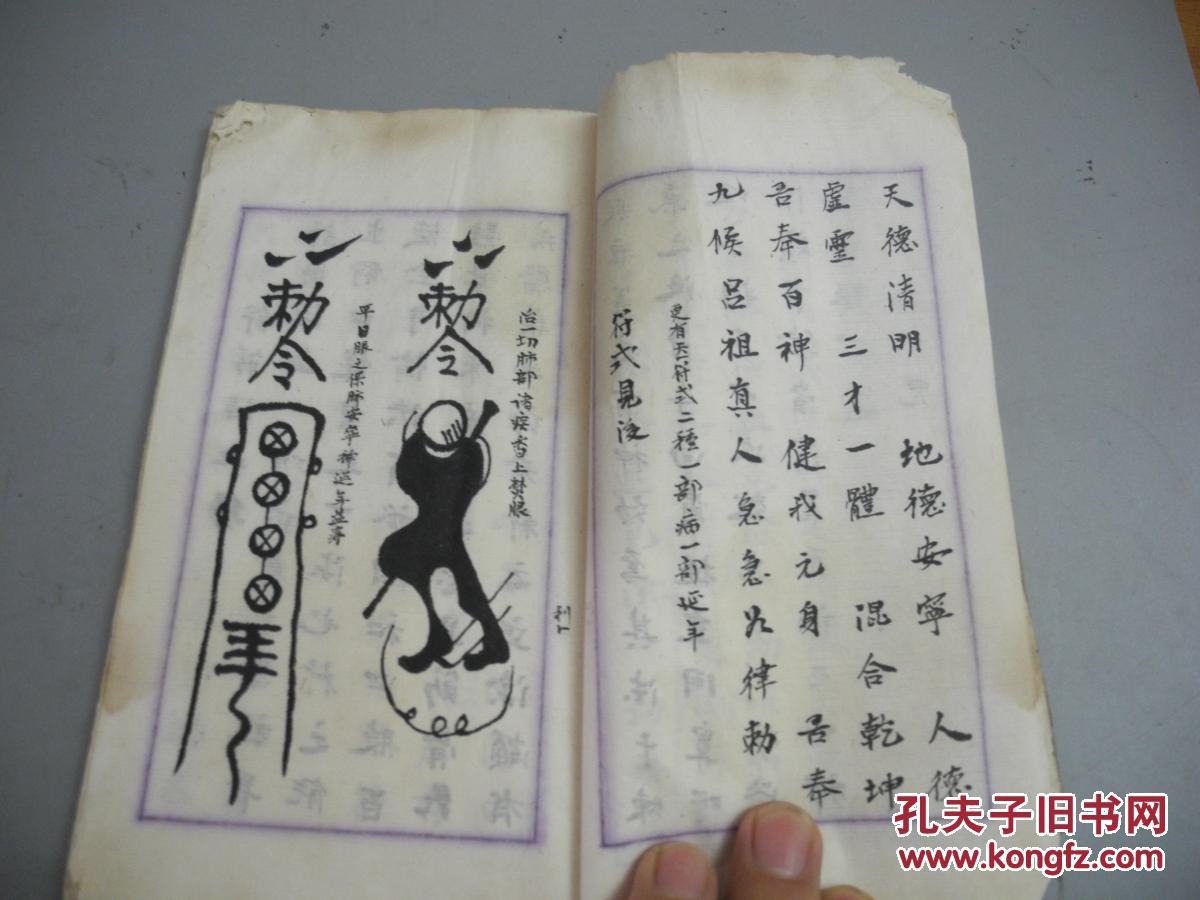 天德清明 地德安寧 人德
虛靈 三才一體 混合乾坤
吾奉百神 健我元身 吾奉
九候呂祖真人急急如律勅
更有天符式二種一部病一部延年
符式見後
治一切肺部諸疾香上焚服
勅令
平日服之保肺安寧神延年益壽
勅令
孔夫子旧书网
www.kongfz.com